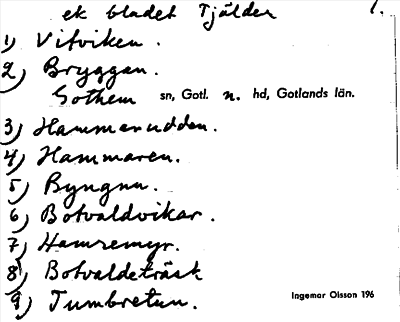 ek bladet Tjälder 1.
1) Vitviken.
2) Bryggan.
Gothem sn, Gotl. n. hd, Gotlands län.
3) Hammarudden.
4) Hammaren.
5) Byngnu.
6) Botvaldvikar.
7) Hamremyr.
8) Botvaldeträsk
9) Tumbretun.
Ingemar Olsson 196